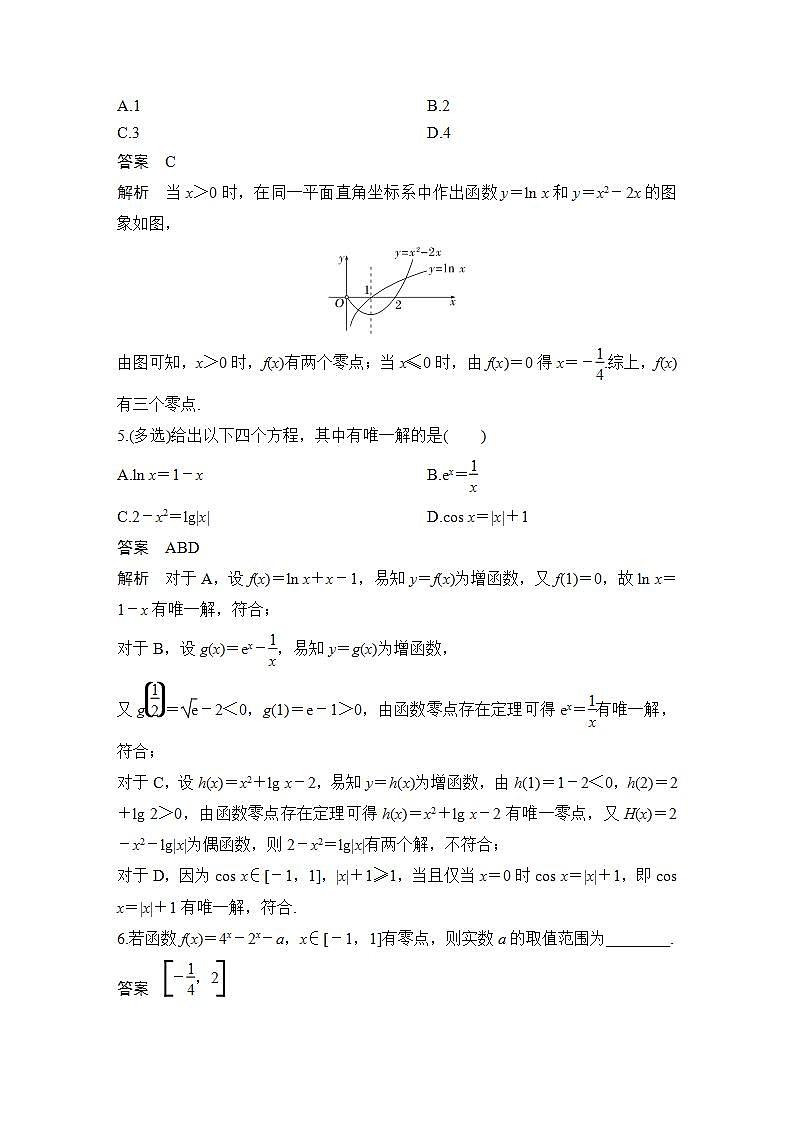 A.1 B.2
C.3 D.4
答案 C
解析 当 x＞0 时，在同一平面直角坐标系中作出函数 y＝ln x 和 y＝x²－2x 的图
象如图，
y=x²-2x
y
y=ln x
1
O 2 x
由图可知，x＞0 时，f(x)有两个零点；当 x≤0 时，由 f(x)＝0 得 x＝－1/4.综上，f(x)
有三个零点.
5.(多选)给出以下四个方程，其中有唯一解的是( )
A.ln x＝1－x B.eˣ＝1/x
C.2－x²＝lg|x| D.cos x＝|x|＋1
答案 ABD
解析 对于 A，设 f(x)＝ln x＋x－1，易知 y＝f(x)为增函数，又 f(1)＝0，故 ln x＝
1－x 有唯一解，符合；
对于 B，设 g(x)＝eˣ－1/x，易知 y＝g(x)为增函数，
又 g(1/2)＝√e－2＜0，g(1)＝e－1＞0，由函数零点存在定理可得 eˣ＝1/x有唯一解，
符合；
对于 C，设 h(x)＝x²＋lg x－2，易知 y＝h(x)为增函数，由 h(1)＝1－2＜0，h(2)＝2
＋lg 2＞0，由函数零点存在定理可得 h(x)＝x²＋lg x－2 有唯一零点，又 H(x)＝2
－x²－lg|x|为偶函数，则 2－x²＝lg|x|有两个解，不符合；
对于 D，因为 cos x∈[－1，1]，|x|＋1≥1，当且仅当 x＝0 时 cos x＝|x|＋1，即 cos
x＝|x|＋1 有唯一解，符合.
6.若函数 f(x)＝4ˣ－2ˣ－a，x∈[－1，1]有零点，则实数 a 的取值范围为________.
答案 [－1/4，2]